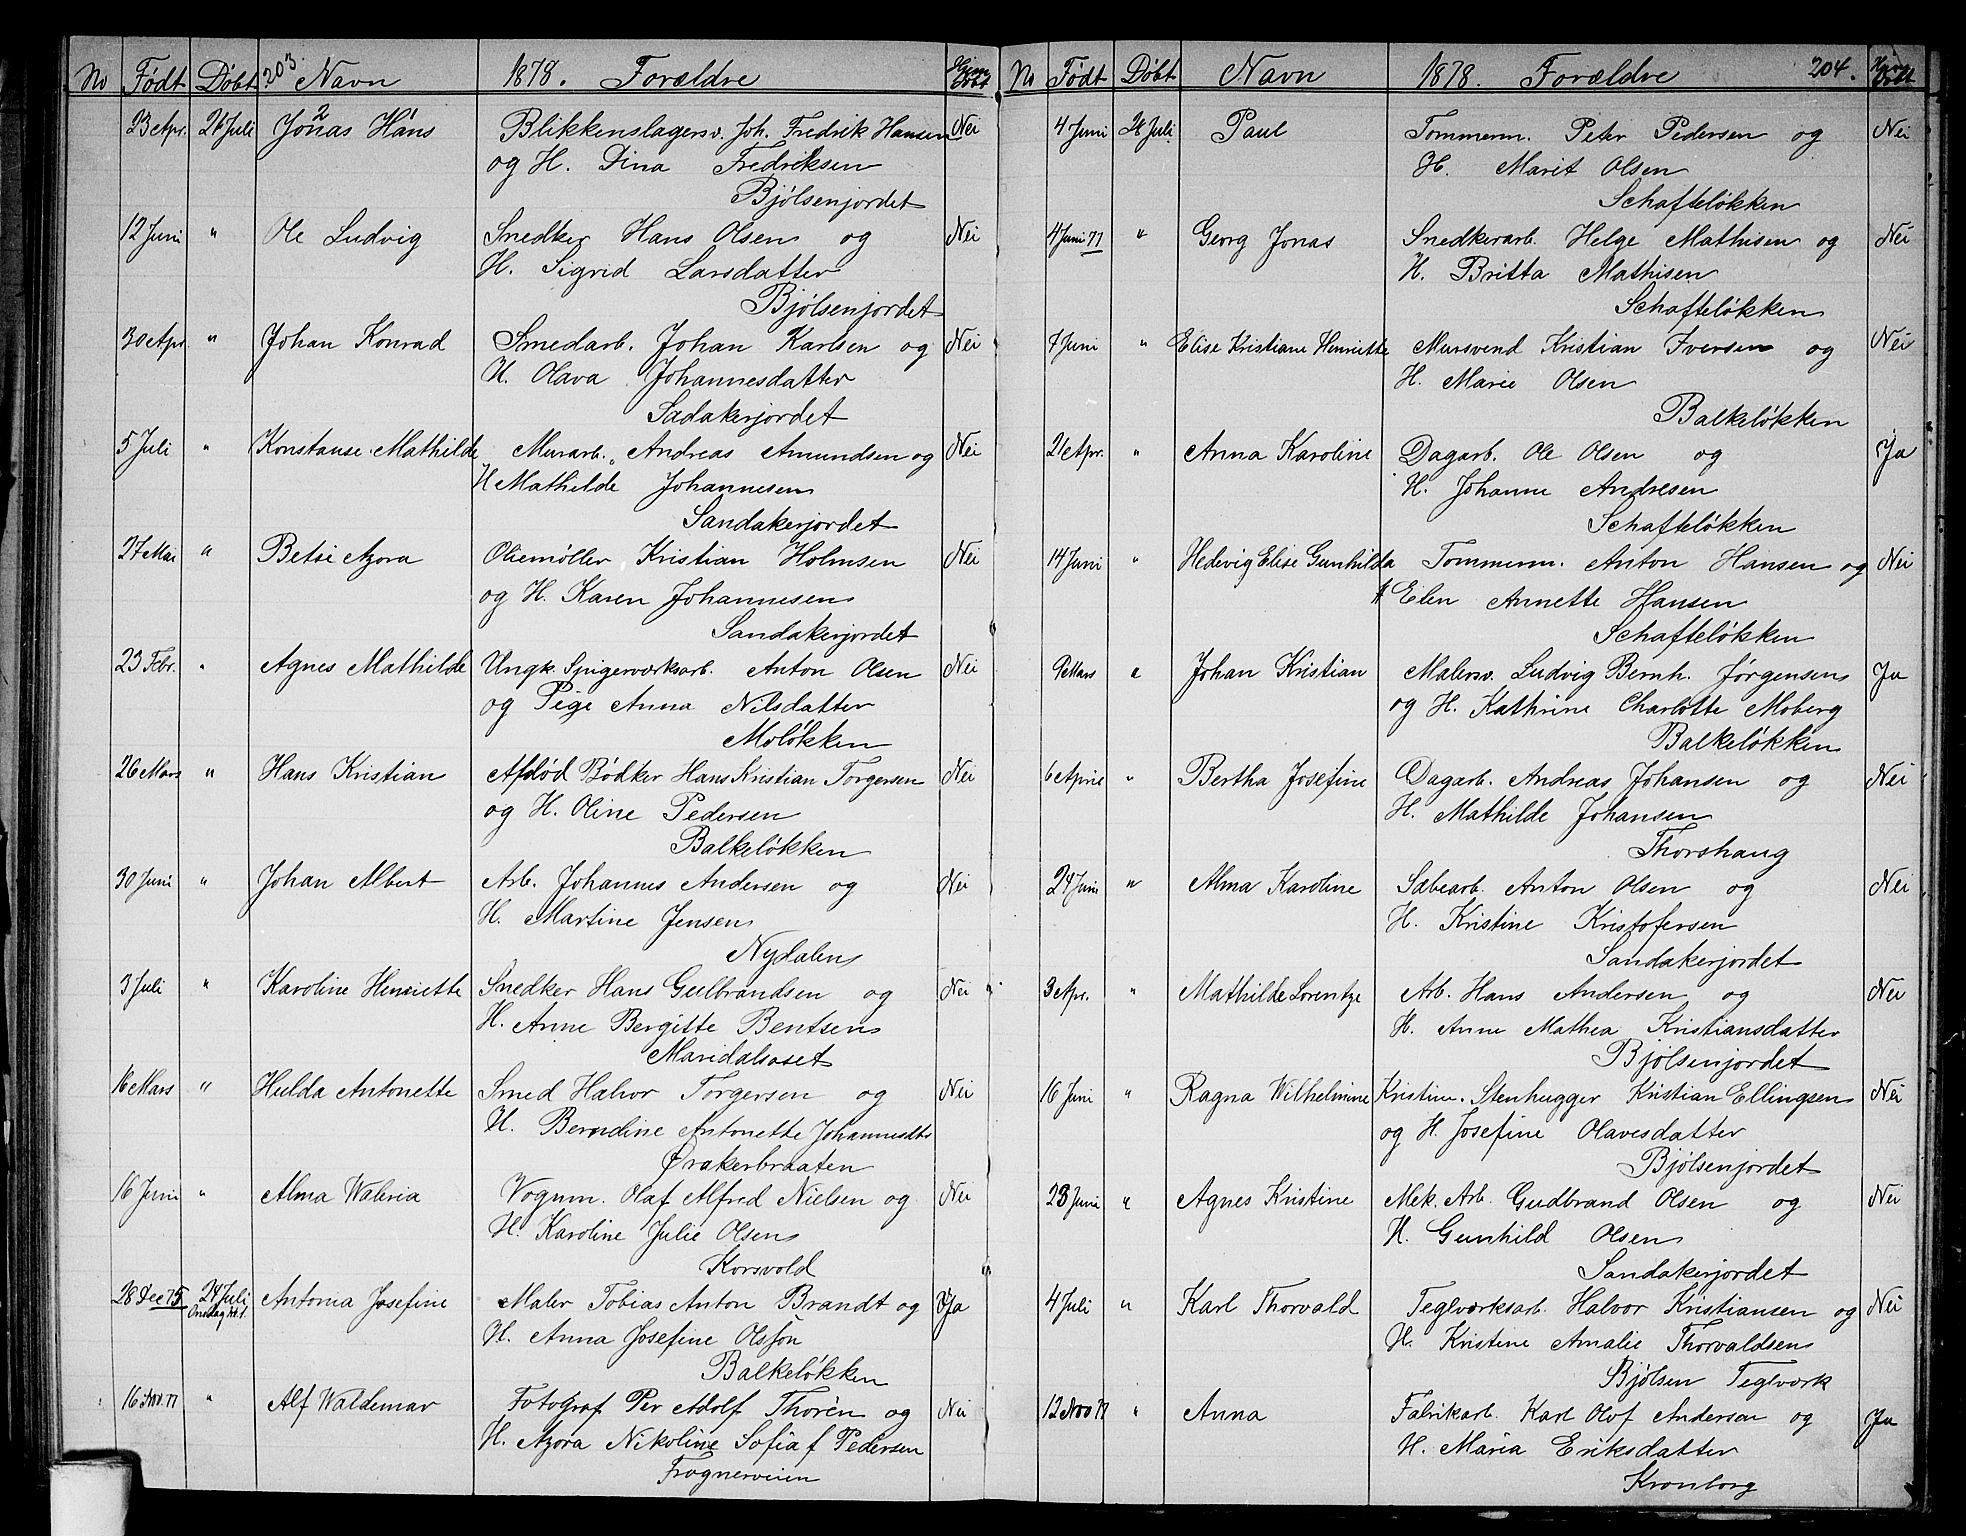 No Født Døbt 203. Navn 1878. Forældre
23 Apr. 28 Juli Jonas Hans Blikkenslagersv. Joh. Fredrik Hansen Nei
2
og H. Dina Fredriksen
Bjølsenjordet
12 Juni " Ole Ludvig Snedker Hans Olsen og Nei
H. Sigrid Larsdatter
Bjølsenjordet
30 Apr " Johan Konrad Smedarb. Johan Karlsen og Nei
H. Olava Johannesdatter
Sadakerjordet
5 Juli " Konstanse Mathilde Murarb. Andreas Amundsen og Nei
H Mathilde Johannesen
Sandakerjordet
27 Mai " Betsi Azora Oliemøller Kristian Holmsen Nei
og H. Karen Johannesen
Sandakerjordet
23 Febr. " Agnes Mathilde Ungk. Spigerværksarb. Anton Olsen Nei
og Pige Anna Nilsdatter
Moløkken
26 Mars " Hans Kristian Afdød Bødker Hans Kristian Torgersen Nei
og H. Oline Pedersen
Balkeløkken
30 Juni " Johan Albert Arb. Johannes Andersen og Nei
H. Martine Jensen
Nydalen
3 Juli " Karoline Henriette Snedker Hans Gulbrandsen og Nei
H. Anne Bergitte Bentsen
Maridalsoset
16 Mars " Hulda Antonette Smed Halvor Torgersen og Nei
H. Berndine Antonette Johannesdtr
Ørakerbraaten
16 Juni " Alma Waleria Vognm. Olaf Alfred Nielsen og Nei
H. Karoline Julie Olsen
Korsvold
28 Dec 75 24 Juli Antonia Josefine Maler Tobias Anton Brandt og Ja
Onsdag
H. Anna Josefine Olsson
Balkeløkken
16 Nov. 77 " Alf Waldemar Fotograf Per Adolf Thorén og Nei
H. Azora Nikoline Sofia f Pedersen
Frognerveien
No Født Døbt Navn 1878. Forældre 204.
4 Juni 28 Juli Paul Tommerm. Peter Pedersen og Nei
H. Marit Olsen
Schafteløkken
4 Juni 77 " Georg Jonas Snedkerarb. Helge Mathisen og Nei
H. Britta Mathisen
Schafteløkken
7 Juni " Elise Kristiane Henriette Mursvend Kristian Iversen og Nei
H. Marie Olsen
Balkeløkken
21 Apr. " Anna Karoline Dagarb. Ole Olsen og Ja
H. Johanne Andresen
Schafteløkken
14 Juni " Hedevig Elise Gunhilda Tommerm. Anton Hansen og Nei
H Elen Annette Hansen
Schafteløkken
9 Mars " Johan Kristian Malersv. Ludvig Bernh. Jørgensen Ja
og H. Kathrine Charlotte Moberg
Balkeløkken
6 April " Bertha Josefine Dagarb. Andreas Johansen og Nei
H. Mathilde Johansen
Thorshaug
24 Juni " Alma Karoline Sæbearb. Anton Olsen og Nei
H. Kristine Kristofersen
Sandakerjordet
3 Apr. " Mathilde Lorentze Arb. Hans Andersen og Nei
H. Anne Mathea Kristiansdatter
Bjølsenjordet
16 Juni " Ragna Wilhelmine Kristine. Stenhugger Kristian Ellingsen Nei
og H. Josefine Olavesdatter
Bjølsenjordet
23 Juni " Agnes Kristine Mek. Arb. Gudbrand Olsen og Nei
H. Gunhild Olsen
Sandakerjordet
4 Juli " Karl Thorvald Teglværksarb. Halvor Kristiansen og Nei
H. Kristine Amalie Thorvaldsen
Bjølsen Teglværk
12 Nov 77 " Anna Fabrikarb. Karl Olof Anderson og Ja
H. Maria Eriksdatter
Kronborg